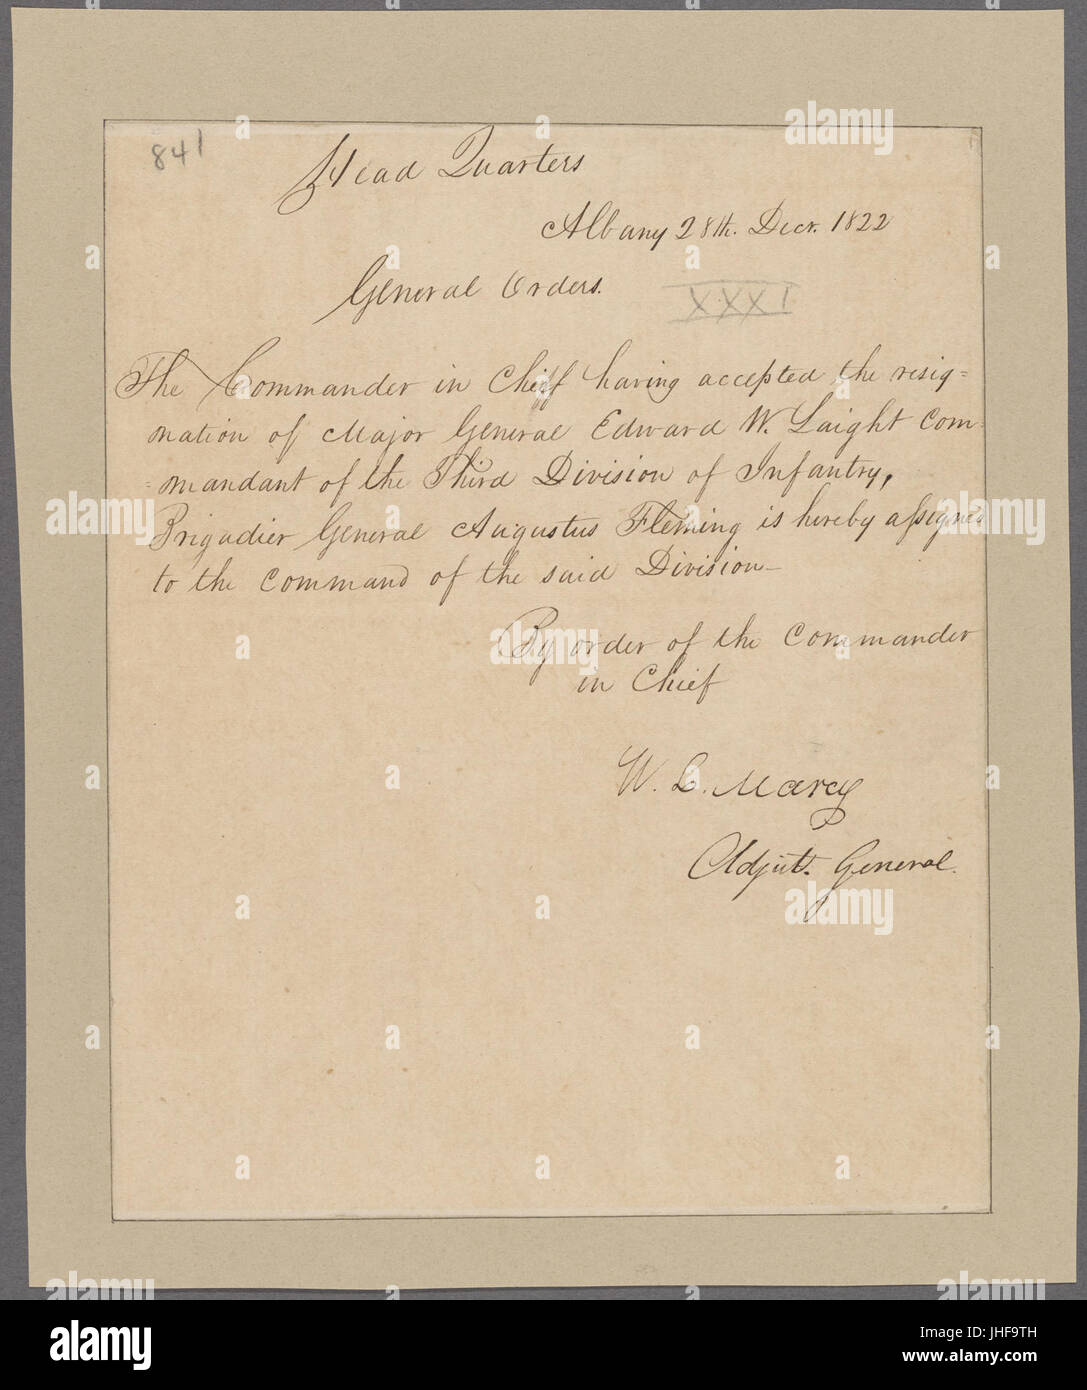 841
Head Quarters
Albany 28th. Decr. 1822
General Orders.
XXXI
The Commander in Chief having accepted the resig=
nation of Major General Edward W. Laight Com=
=mandant of the Third Division of Infantry,
Brigadier General Augustus Fleming is hereby assigned
to the command of the said Division—
By order of the Commander
in Chief
W. L. Marcy
Adjut. General.
alamy stock photo
JHF9TH
www.alamy.com